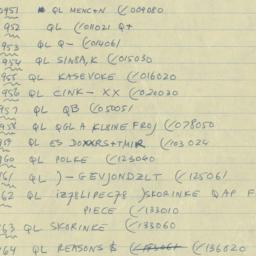 0951 QL MENCTN (/009080
952 QL (/011021 Q+
953 QL Q- (/014061
954 QL SINBA,K (/015030
955 QL KASEVOKE (/016020
956 QL CINK-XX (/020030
957 QL QB (/050051
958 QL QGL A KLBINE FROJ (/078050
959 QL ES (/103024
960 QL POLKE (/123040
961 QL )-GEVJONDZLT (/125061
962 QL )SKORINKE QAP F
PIECE (/133010
963 QL SKORINKE (/133060
964 QL REASONS $ (/136020